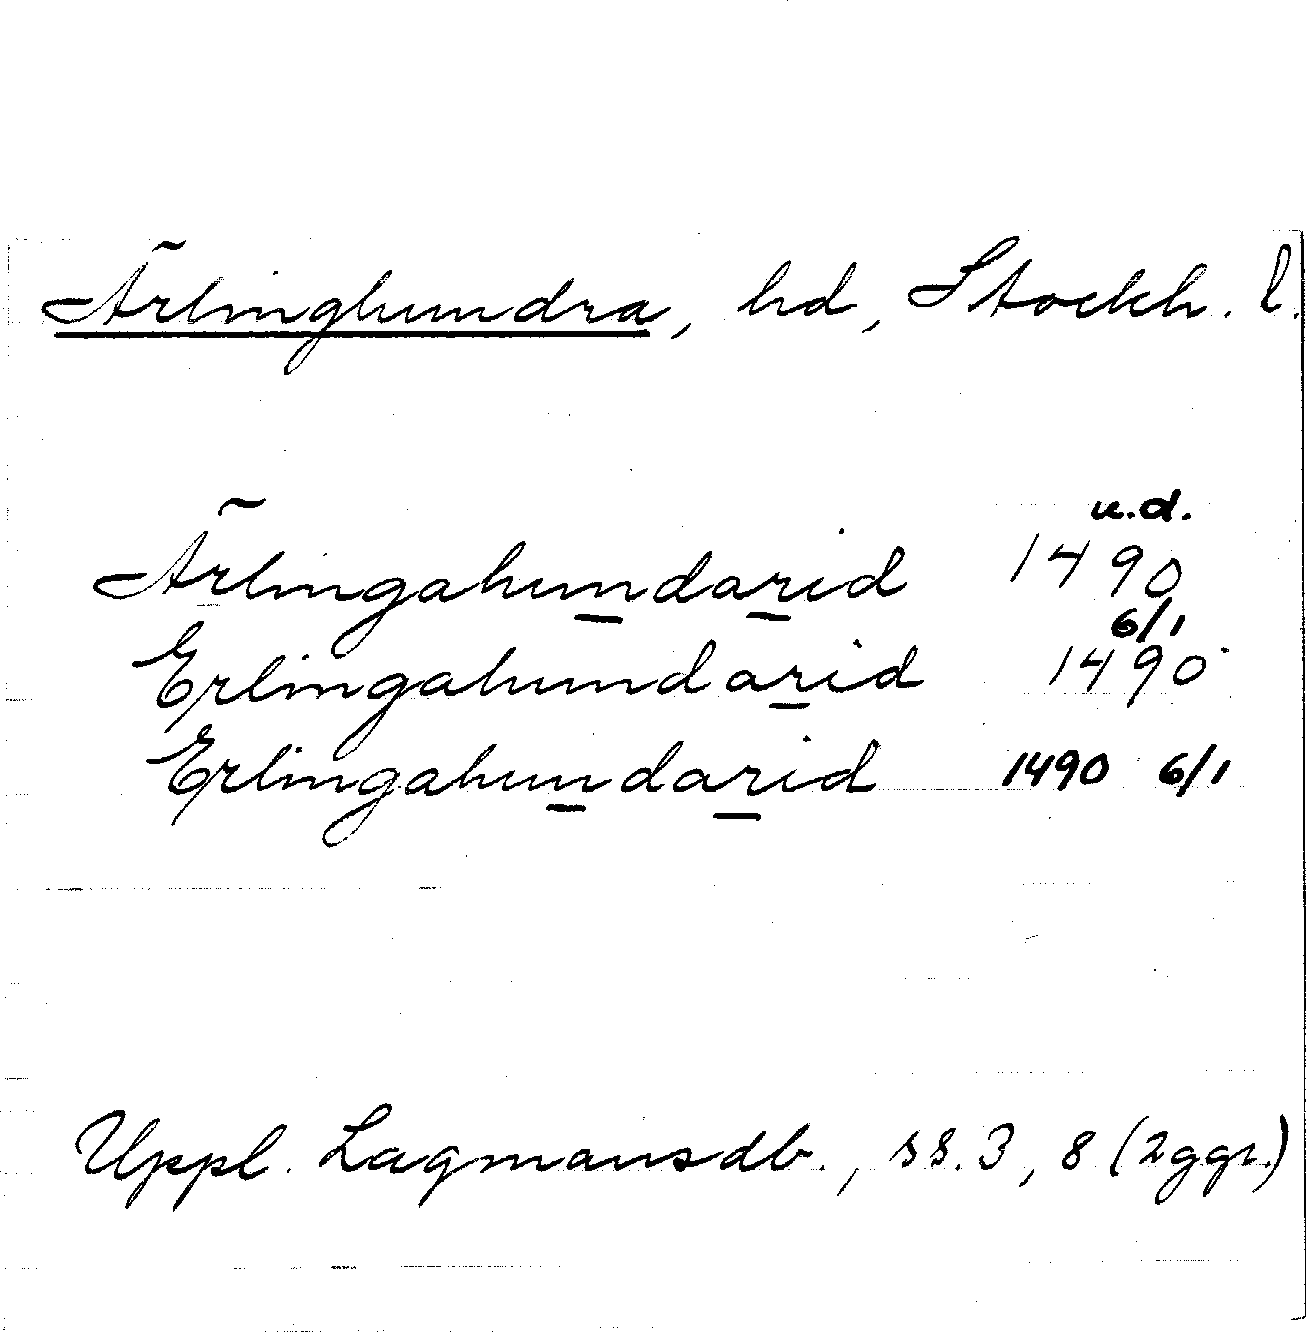 Ärlinghundra, hd, Stockh. l.
u.d.
Ärlingahundarid 1490
6/1
Erlingahundarid 1490
Erlingahundarid 1490 6/1
Uppl. Lagmansdb., ss. 3, 8 (2ggr.)